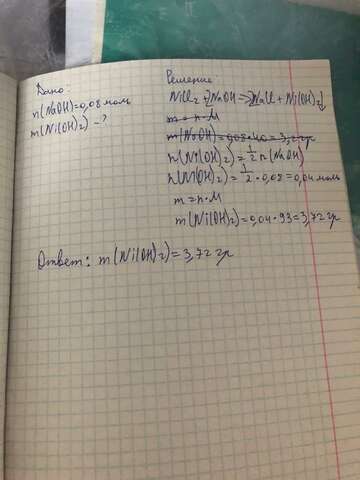 Дано:
n(NaOH)=0,08 моль
m(Ni(OH)₂)-?
Решение
NiCl₂+2NaOH=>2NaCl+Ni(OH)₂↓
m=n·M
m(NaOH)=0,08·40=3,2 гр
n(Ni(OH)₂)=1/2 n(NaOH)
n(Ni(OH)₂)=1/2·0,08=0,04 моль
m=n·M
m(Ni(OH)₂)=0,04·93=3,72 гр
Ответ: m(Ni(OH)₂)=3,72 гр